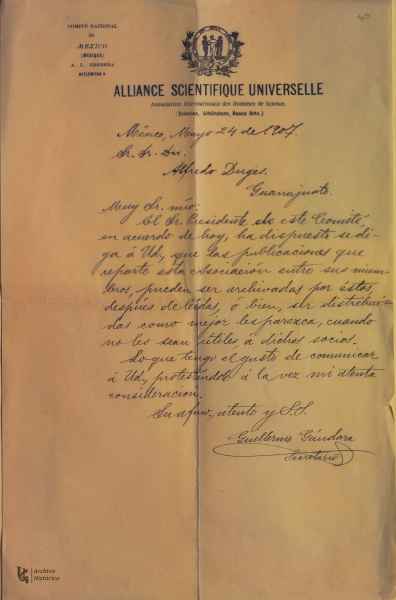 COMITÉ NACIONAL
DE
MEXICO
(MEXIQUE)
A. L. HERRERA
ALLIANCE SCIENTIFIQUE UNIVERSELLE
Association Internationale des Hommes de Science.
(Sciences, Littérature, Beaux Arts.)
México, Mayo 24 de 1907.
Sr. Dr. Dn.
Alfredo Dugès.
Guanajuato.
Muy Sr. mío:
El Sr. Presidente de este Comité,
en acuerdo de hoy, ha dispuesto se di-
ga á Ud. que las publicaciones que
reparte esta Asociación entre sus miem-
bros pueden ser archivadas por éstos,
después de leídas, ó bien, ser distribuí-
das como mejor les parezca, cuando
no les sean útiles á dichos socios.
Lo que tengo el gusto de comunicar
á Ud, protestándole á la vez mi atenta
consideración.
Su afmo, atento y S.S.
Guillermo Gándara
Secretario
Archivo
Histórico